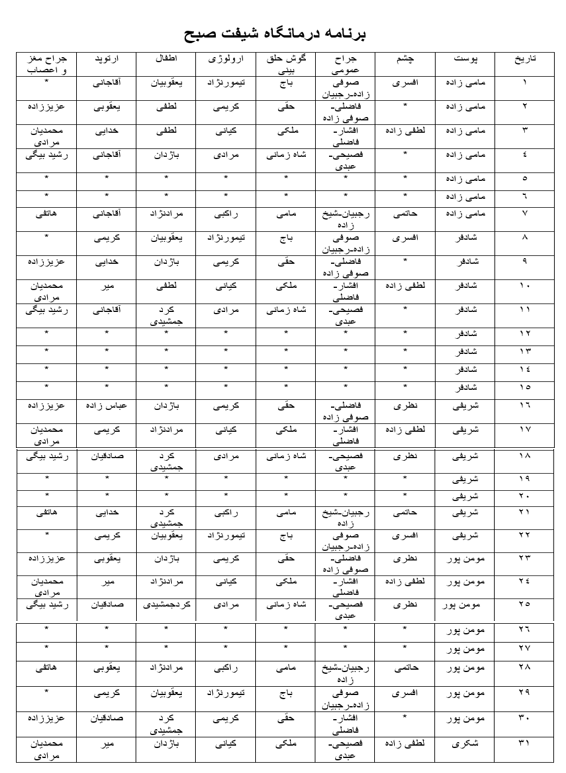 برنامه درمانگاه شیفت صبح
تاریخ پوست چشم جراح عمومی گوش حلق بینی ارولوژی اطفال ارتوپد جراح مغز و اعصاب
۱ مامی زاده افسری صوفی زاده-رجبیان باج تیمورنژاد یعقوبیان آقاجانی *
۲ مامی زاده * فاضلی- صوفی زاده حقی کریمی لطفی یعقوبی عزیززاده
۳ مامی زاده لطفی زاده افشار - فاضلی ملکی کیانی لطفی خدایی محمدیان مرادی
٤ مامی زاده * فصیحی- عبدی شاه زمانی مرادی باژدان آقاجانی رشید بیگی
٥ مامی زاده * * * * * * *
٦ مامی زاده * * * * * * *
۷ مامی زاده حاتمی رجبیان-شیخ زاده مامی راکبی مرادنژاد آقاجانی هاتفی
۸ شادفر افسری صوفی زاده-رجبیان باج تیمورنژاد یعقوبیان کریمی *
۹ شادفر * فاضلی- صوفی زاده حقی کریمی باژدان خدایی عزیززاده
۱۰ شادفر لطفی زاده افشار - فاضلی ملکی کیانی لطفی میر محمدیان مرادی
۱۱ شادفر * فصیحی- عبدی شاه زمانی مرادی کرد جمشیدی آقاجانی رشید بیگی
۱۲ شادفر * * * * * * *
۱۳ شادفر * * * * * * *
۱٤ شادفر * * * * * * *
۱٥ شادفر * * * * * * *
۱٦ شریفی نظری فاضلی- صوفی زاده حقی کریمی باژدان عباس زاده عزیززاده
۱۷ شریفی لطفی زاده افشار - فاضلی ملکی کیانی مرادنژاد کریمی محمدیان مرادی
۱۸ شریفی نظری فصیحی- عبدی شاه زمانی مرادی کرد جمشیدی صادقیان رشید بیگی
۱۹ شریفی * * * * * * *
۲۰ شریفی * * * * * * *
۲۱ شریفی حاتمی رجبیان-شیخ زاده مامی راکبی کرد جمشیدی خدایی هاتفی
۲۲ شریفی افسری صوفی زاده-رجبیان باج تیمورنژاد یعقوبیان کریمی *
۲۳ مومن پور نظری فاضلی- صوفی زاده حقی کریمی باژدان یعقوبی عزیززاده
۲٤ مومن پور لطفی زاده افشار - فاضلی ملکی کیانی مرادنژاد میر محمدیان مرادی
۲٥ مومن پور نظری فصیحی- عبدی شاه زمانی مرادی کردجمشیدی صادقیان رشید بیگی
۲٦ مومن پور * * * * * * *
۲۷ مومن پور * * * * * * *
۲۸ مومن پور حاتمی رجبیان-شیخ زاده مامی راکبی مرادنژاد یعقوبی هاتفی
۲۹ مومن پور افسری صوفی زاده-رجبیان باج تیمورنژاد یعقوبیان کریمی *
۳۰ مومن پور * افشار - فاضلی حقی کریمی کرد جمشیدی صادقیان عزیززاده
۳۱ شکری لطفی زاده فصیحی- عبدی ملکی کیانی باژدان میر محمدیان مرادی